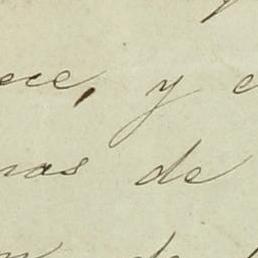 ece, y e
nas de